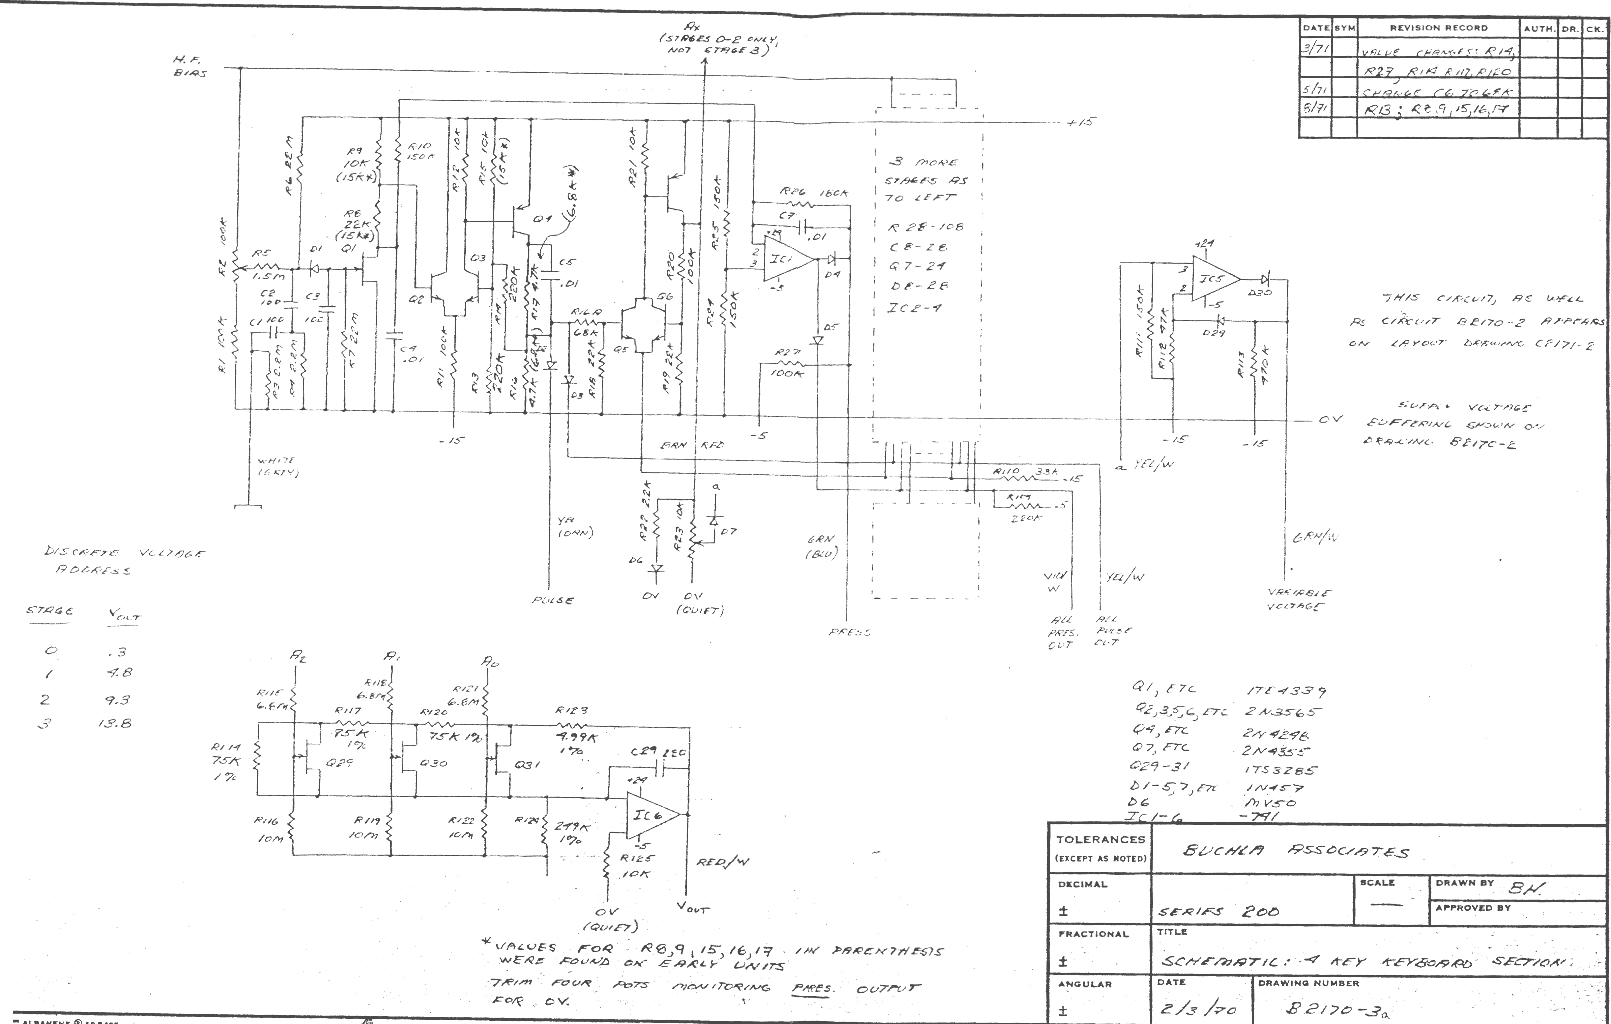 AX
(STAGES 0-2 ONLY,
NOT STAGE 3)
H.F.
BIAS
DATE SYM REVISION RECORD AUTH. DR. CK.
3/71 VALUE CHANGES: R14,
R27, R114 R117, R120
5/71 CHANGE C6 TO 68K
8/71 R13; R8,9,15,16,17
+15
R6 22M
R9
10K
(15K*)
R10
150K
R12 10K
R15 10K
(15K*)
R21 10K
R8
22K
(15K*)
Q1
Q4
(6.8K*)
R25 150K
R26 180K
C7
.01
+24
2
3
IC1
-5
D4
3 MORE
STAGES AS
TO LEFT
R 28-108
C8-28
Q7-24
D8-28
IC2-4
R2 100K
R5
1.5M
D1
C2
100
C3
100
C1 100
Q2
Q3
C5
.01
R14 220K
R17 4.7K
R20
100K
R24 150K
R1 100K
R3 2.2M
R4 2.2M
R7 22M
C4
.01
R11 100K
R13
220K
R16
4.7K (6.8K*)
R16A
68K
R18 22K
Q5
D3
R19 22K
R27
100K
D5
+24
3
2
IC5
-5
D30
D29
R111 150K
R112 47K
R113
470K
THIS CIRCUIT, AS WELL
AS CIRCUIT B2170-2 APPEARS
ON LAYOUT DRAWING C2171-2
-15
-5
0V
-15
-15
VOLTAGE
BUFFERING SHOWN ON
DRAWING B2170-2
WHITE
(GREY)
BRN RED
a YEL/W
R110 3.3K
-15
R109
220K
-5
R22 2.2K
R23 10K
a
D7
D6
0V
0V
(QUIET)
YEL
(ORN)
PULSE
GRN
(BLU)
PRESS
VIO/
W
YEL/W
ALL
PRES.
OUT
ALL
PULSE
OUT
GRN/W
VARIABLE
VOLTAGE
DISCRETE VOLTAGE
ADDRESS
STAGE VOUT
0 .3
1 4.8
2 9.3
3 13.8
A2
A1
A0
R115
6.8M
R118
6.8M
R121
6.8M
R117
75K
1%
R120
75K 1%
R123
4.99K
1%
R114
75K
1%
Q29
Q30
Q31
C29 220
+24
IC6
-5
R116
10M
R119
10M
R122
10M
R124
249K
1%
R125
10K
RED/W
0V
(QUIET)
VOUT
Q1, ETC ITE4339
Q2,3,5,6, ETC 2N3565
Q4, ETC 2N4248
Q7, ETC 2N4355
Q29-31 ITS3285
D1-5,7, ETC 1N457
D6 MV50
IC1-6 -741
*VALUES FOR R8,9,15,16,17 IN PARENTHESIS
WERE FOUND ON EARLY UNITS
TRIM FOUR POTS MONITORING PRES. OUTPUT
FOR 0V.
TOLERANCES
(EXCEPT AS NOTED)
BUCHLA ASSOCIATES
DECIMAL
±
SERIES 200
SCALE
—
DRAWN BY BH.
APPROVED BY
FRACTIONAL
±
TITLE
SCHEMATIC: 4 KEY KEYBOARD SECTION.
ANGULAR
±
DATE
2/3/70
DRAWING NUMBER
B2170-3a